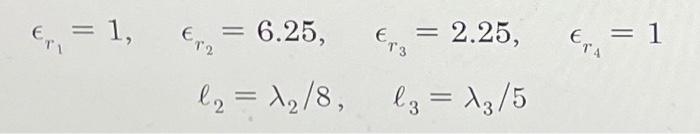 ϵ_{r_1} = 1, ϵ_{r_2} = 6.25, ϵ_{r_3} = 2.25, ϵ_{r_4} = 1
ℓ_2 = λ_2/8, ℓ_3 = λ_3/5